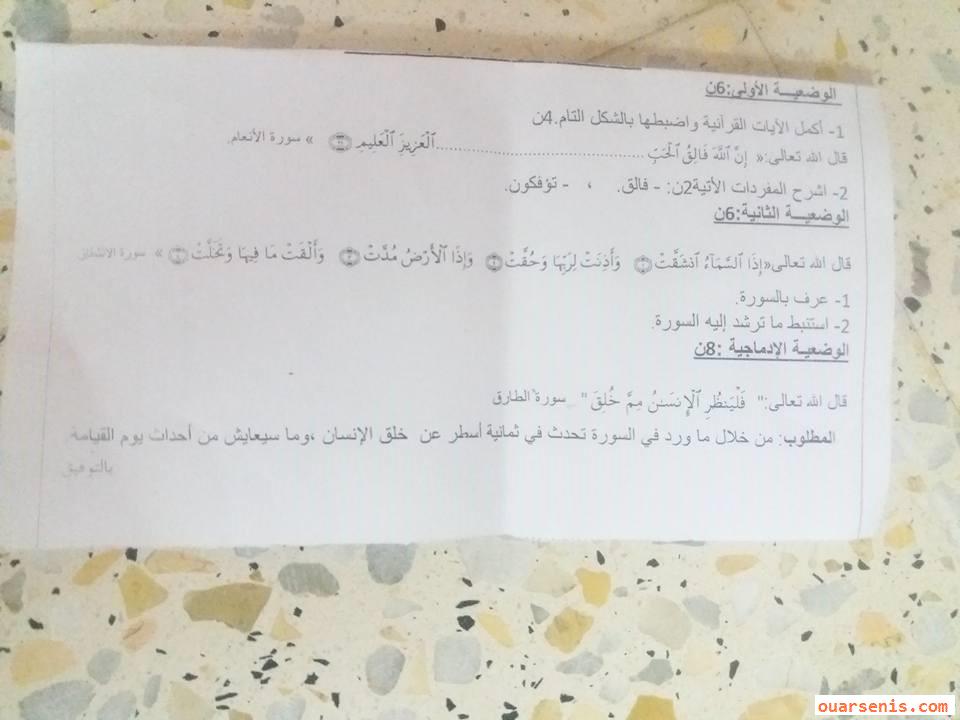 الوضعيـــة الأولى:6ن
1- أكمل الآيات القرآنية واضبطها بالشكل التام.4ن
قال الله تعالى:« إِنَّ ٱللَّهَ فَالِقُ ٱلْحَبِّ ............................................ ٱلْعَزِيزِ ٱلْعَلِيمِ » سورة الأنعام.
2- اشرح المفردات الأتية2ن: - فالق. ، - تؤفكون.
الوضعيـــة الثانية:6ن
قال الله تعالى«إِذَا ٱلسَّمَآءُ ٱنشَقَّتْ ۝ وَأَذِنَتْ لِرَبِّهَا وَحُقَّتْ ۝ وَإِذَا ٱلْأَرْضُ مُدَّتْ ۝ وَأَلْقَتْ مَا فِيهَا وَتَخَلَّتْ ۝ » سورة الانشقاق
1- عرف بالسورة.
2- استنبط ما ترشد إليه السورة.
الوضعية الإدماجية :8ن
قال الله تعالى:" فَلْيَنظُرِ ٱلْإِنسَـٰنُ مِمَّ خُلِقَ " سورة الطارق
المطلوب: من خلال ما ورد في السورة تحدث في ثمانية أسطر عن خلق الإنسان ،وما سيعايش من أحداث يوم القيامة
بالتوفيق
ouarsenis.com